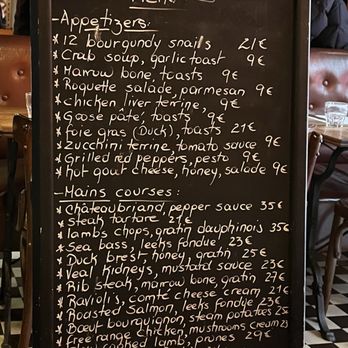 Menu
-Appetizers:
*12 bourgundy snails 21€
*Crab soup, garlic toast 9€
*Marrow bone, toasts 9€
*Roquette salade, parmesan 9€
*chicken liver terrine, 9€
*Goose pâté, toasts 9€
*foie gras (Duck), toasts 21€
*Zucchini terrine, tomato sauce 9€
*Grilled red peppers, pesto 9€
*hot goat cheese, honey, salade 9€
-Mains courses:
*Châteaubriand, pepper sauce 35€
*steak tartare 21€
*lambs chops, gratin dauphinois 35€
*Sea bass, leeks fondue, 23€
*Duck brest, honey, gratin 25€
*Veal kidneys, mustard sauce 23€
*Rib steak, marrow bone, gratin 27€
*Ravioli's, comté cheese cream 21€
*Roasted Salmon, leeks fondue 23€
*Bœuf bourguignon steam potatoes 25€
*free range chicken, mushrooms cream 23
cooked lamb, prunes 29€